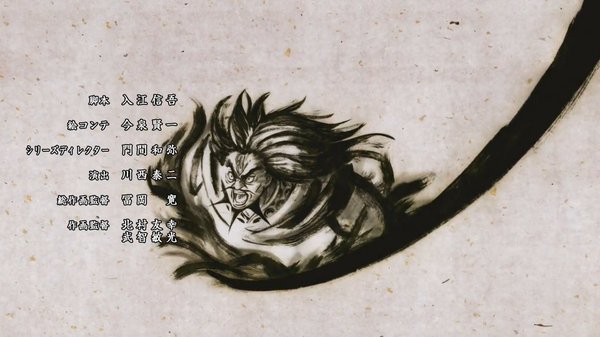 脚本 入江信吾
絵コンテ 今泉賢一
シリーズディレクター 門間和弥
演出 川西泰二
総作画監督 冨岡 寛
作画監督 北村友幸
武智敏光